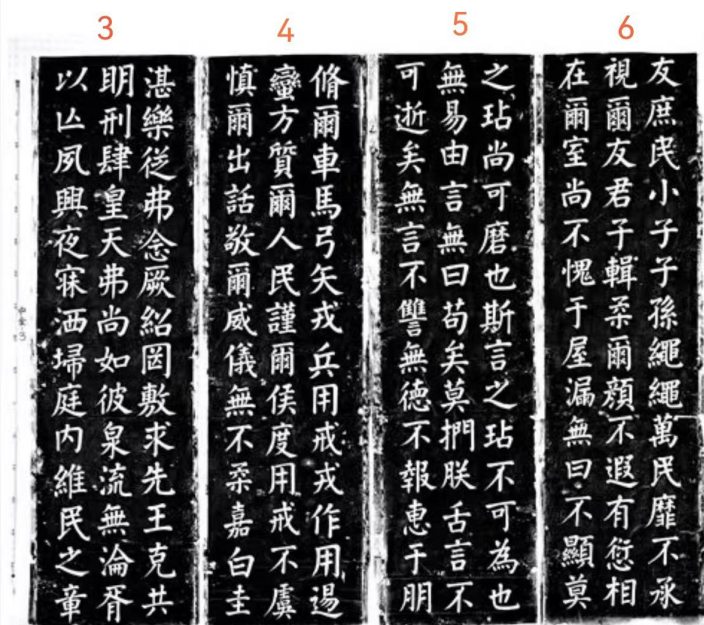 3
湛樂從弗念厥紹罔敷求先王克共
明刑肆皇天弗尚如彼泉流無淪胥
以亾夙興夜寐洒埽庭内維民之章
4
脩爾車馬弓矢戎兵用戒戎作用逷
蠻方質爾人民謹爾侯度用戒不虞
慎爾出話敬爾威儀無不柔嘉白圭
5
之玷尚可磨也斯言之玷不可為也
無易由言無曰苟矣莫捫朕舌言不
可逝矣無言不讎無德不報惠于朋
6
友庶民小子子孫繩繩萬民靡不承
視爾友君子輯柔爾顏不遐有愆相
在爾室尚不愧于屋漏無曰不顯莫